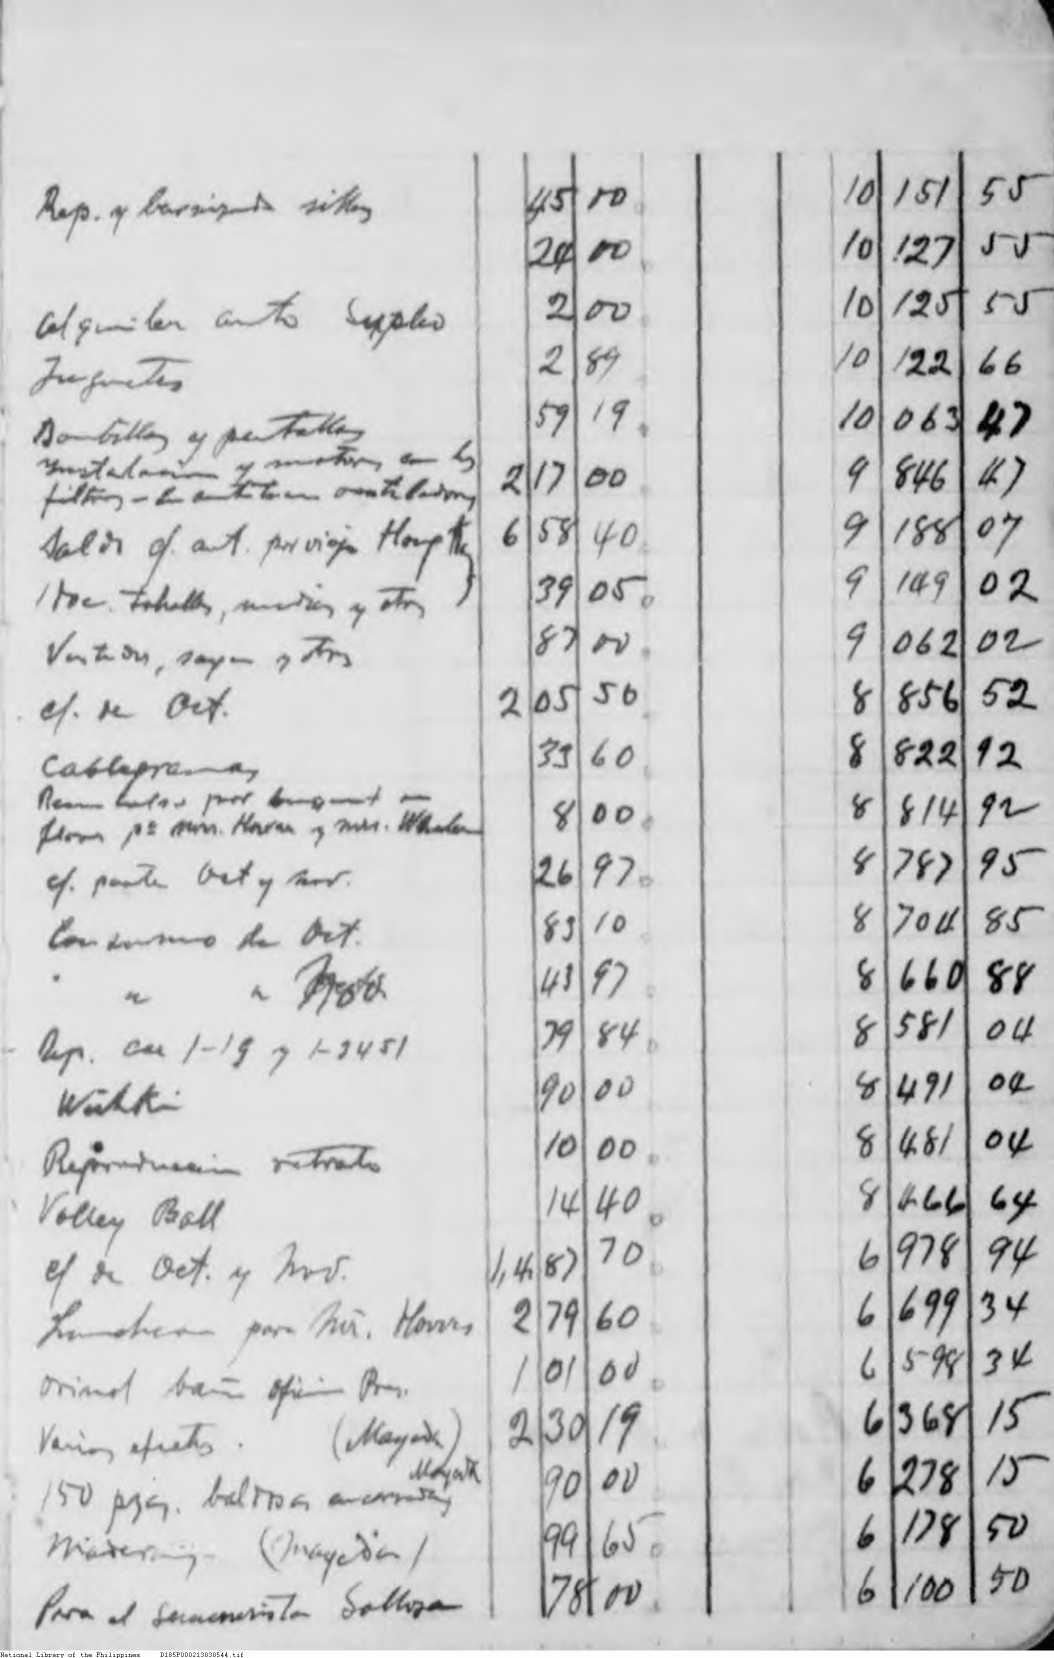 Rep. y barnizada sillas 45 00 10 151 55
24 00 10 127 55
Alquiler auto Supplio 2 00 10 125 55
Juguetes 2 89 10 122 66
Bombillas y pantallas 59 19 10 063 47
Instalacion y motores con los
filtros - ventiladores 217 00 9 846 47
Saldo cf. ant. por viaje 658 40 9 188 07
1 doc. toballas, medias y otros 39 05 9 149 02
Vestidos, sayas y otros 87 00 9 062 02
cf. de Oct. 205 50 8 856 52
Cablegramas 33 60 8 822 92
por bouquet
flores pª mrs. Howes y mrs. Whalen 8 00 8 814 92
cf. parte Oct y nov. 26 97 8 787 95
Consumo de Oct. 83 10 8 704 85
" " " 43 97 8 660 88
Rep. car 1-19 y 1-3451 79 84 8 581 04
Wishki 90 00 8 491 04
Reproduccion retrato 10 00 8 481 04
Volley Ball 14 40 8 466 64
cf de Oct. y Nov. 1,487 70 6 978 94
Luncheon para Mr. Howes 279 60 6 699 34
orinol baño oficina Pres. 101 00 6 598 34
Varios efectos. 230 19 6 368 15
150 pzas. baldosas 90 00 6 278 15
99 65 6 178 50
Para el 78 00 6 100 50
National Library of the Philippines D185P000213030544.tif